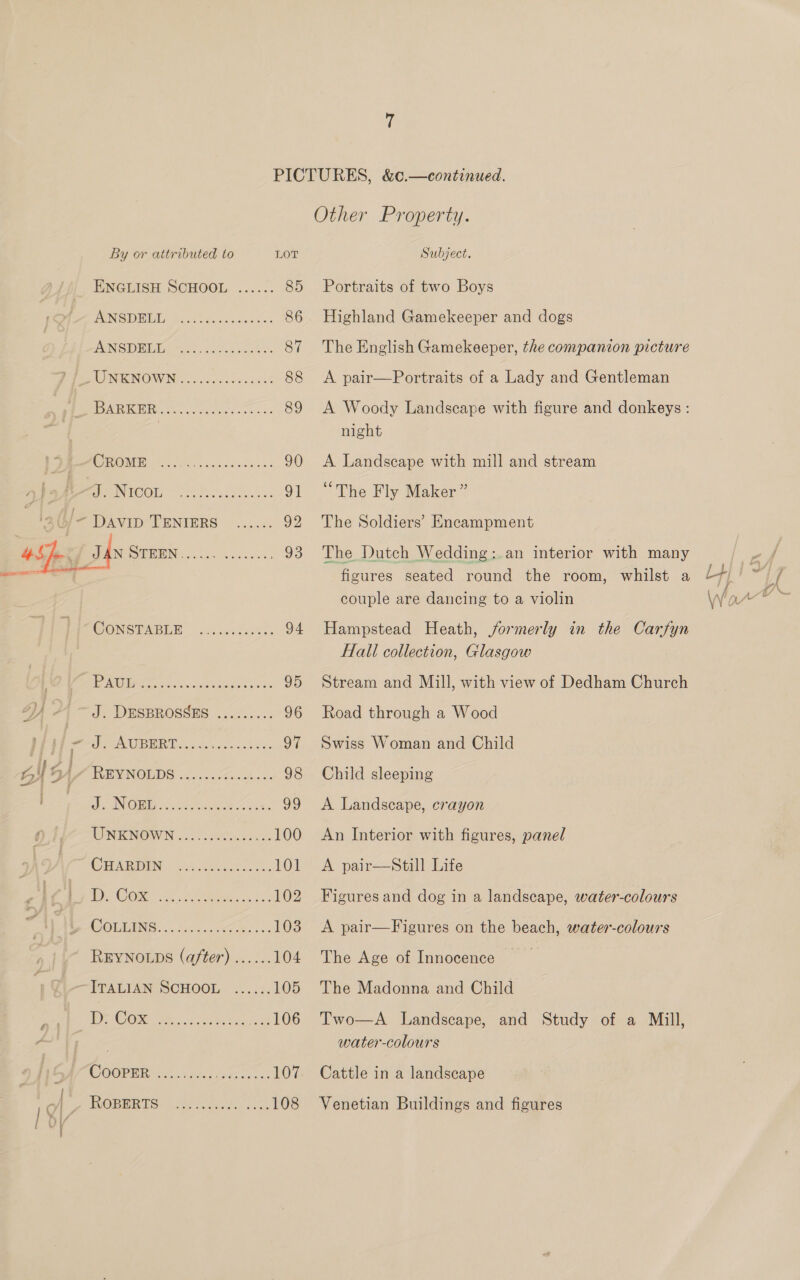 7
PICTURES, &c.—continued.
Other Property.
By or attributed to LOT Subject.
ENGLISH SCHOOL ...... 85 Portraits of two Boys
ANSDELL ............... 86 Highland Gamekeeper and dogs
ANSDELL ............... 87 The English Gamekeeper, the companion picture
UNKNOWN ............ 88 A pair—Portraits of a Lady and Gentleman
BARKER ............... 89 A Woody Landscape with figure and donkeys:
night
CROME ............... 90 A Landscape with mill and stream
J. NICOL ............... 91 “The Fly Maker”
DAVID TENIERS ...... 92 The Soldiers’ Encampment
JAN STEEN ............ 93 The Dutch Wedding: an interior with many
figures seated round the room, whilst a
couple are dancing to a violin
CONSTABLE ............ 94 Hampstead Heath, formerly in the Carfyn
Hall collection, Glasgow
PAUL .................. 95 Stream and Mill, with view of Dedham Church
J. DESBROSSES ......... 96 Road through a Wood
J. AUBERT ............ 97 Swiss Woman and Child
REYNOLDS ............ 98 Child sleeping
J. NOEL ............... 99 A Landscape, crayon
UNKNOWN ............ 100 An Interior with figures, panel
CHARDIN ............ 101 A pair—Still Life
D. COX ............... 102 Figures and dog in a landscape, water-colours
COLLINS ............... 103 A pair—Figures on the beach, water-colours
REYNOLDS (after) ...... 104 The Age of Innocence
ITALIAN SCHOOL ...... 105 The Madonna and Child
D. COX ............... 106 Two—A Landscape, and Study of a Mill,
water-colours
COOPER ............... 107 Cattle in a landscape
ROBERTS ............ 108 Venetian Buildings and figures